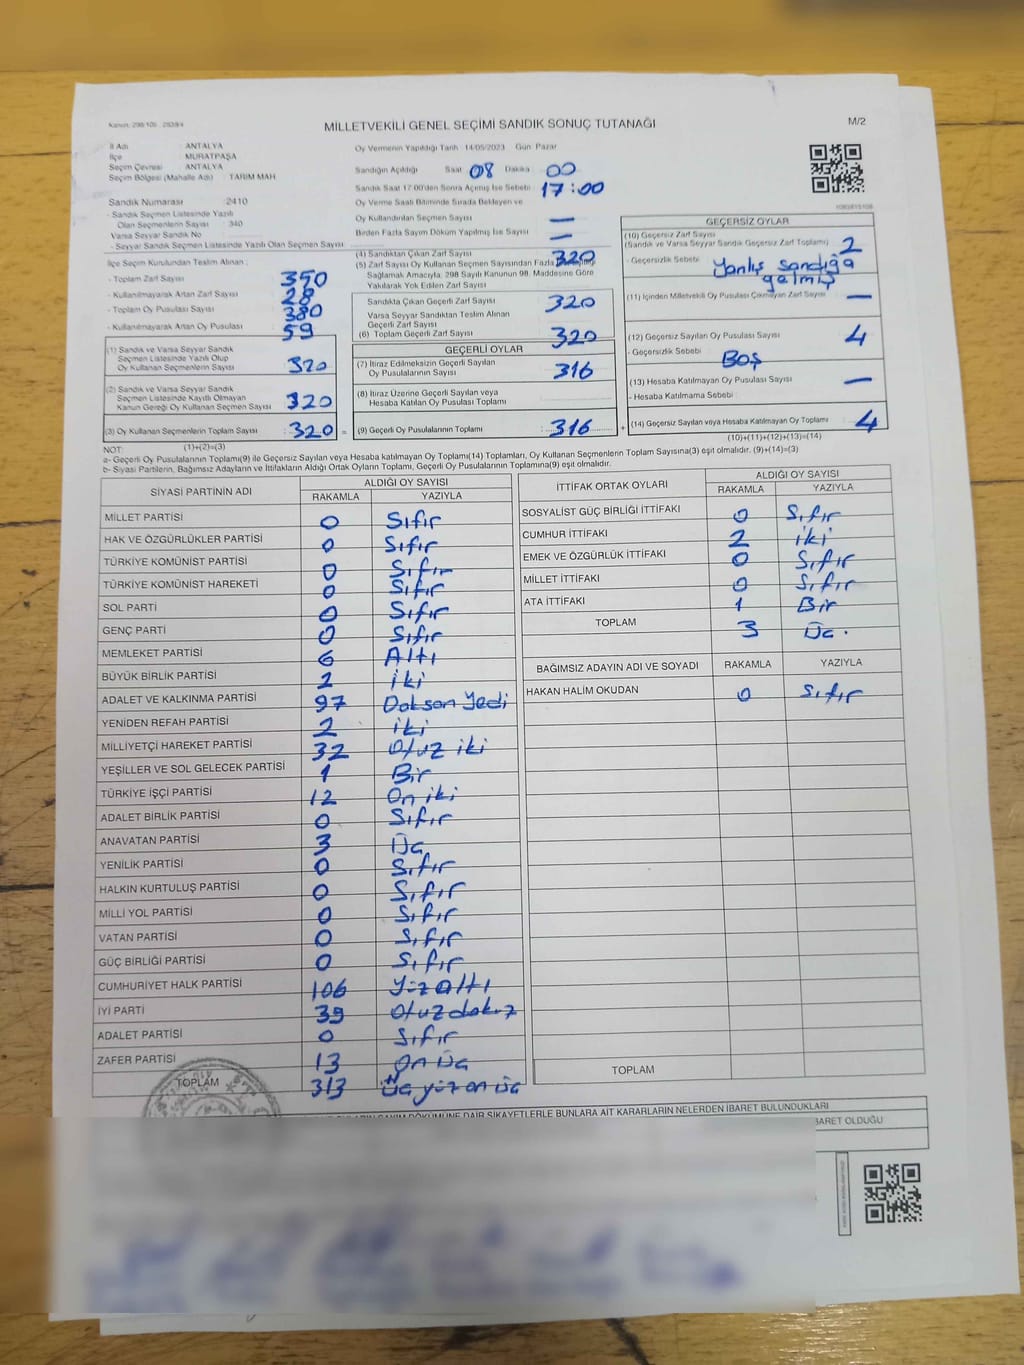 Kanun: 298/105 - 2839/4
MİLLETVEKİLİ GENEL SEÇİMİ SANDIK SONUÇ TUTANAĞI
M/2
İl Adı ANTALYA
İlçe MURATPAŞA
Seçim Çevresi ANTALYA
Seçim Bölgesi (Mahalle Adı) : TARIM MAH.
Sandık Numarası : 2410
- Sandık Seçmen Listesinde Yazılı
Olan Seçmenlerin Sayısı : 340
Varsa Seyyar Sandık No :
- Seyyar Sandık Seçmen Listesinde Yazılı Olan Seçmen Sayısı:
Oy Vermenin Yapıldığı Tarih : 14/05/2023 Gün: Pazar
Sandığın Açıldığı Saat 08 Dakika 00
Sandık Saat 17:00'den Sonra Açılmış İse Sebebi : 17:00
Oy Verme Saati Bitiminde Sırada Bekleyen ve
Oy Kullandırılan Seçmen Sayısı : —
Birden Fazla Sayım Döküm Yapılmış İse Sayısı : —
İlçe Seçim Kurulundan Teslim Alınan ;
- Toplam Zarf Sayısı : 350
- Kullanılmayarak Artan Zarf Sayısı : 28
- Toplam Oy Pusulası Sayısı : 380
- Kullanılmayarak Artan Oy Pusulası : 59
(1) Sandık ve Varsa Seyyar Sandık
Seçmen Listesinde Yazılı Olup
Oy Kullanan Seçmenlerin Sayısı : 320
(2) Sandık ve Varsa Seyyar Sandık
Seçmen Listesinde Kayıtlı Olmayan
Kanun Gereği Oy Kullanan Seçmen Sayısı : 320
(3) Oy Kullanan Seçmenlerin Toplam Sayısı : 320 =
(4) Sandıktan Çıkan Zarf Sayısı : 320
(5) Zarf Sayısı Oy Kullanan Seçmen Sayısından Fazla Eşitliği
Sağlamak Amacıyla; 298 Sayılı Kanunun 98. Maddesine Göre
Yakılarak Yok Edilen Zarf Sayısı
Sandıkta Çıkan Geçerli Zarf Sayısı : 320
Varsa Seyyar Sandıktan Teslim Alınan
Geçerli Zarf Sayısı
(6) Toplam Geçerli Zarf Sayısı : 320
GEÇERLİ OYLAR
(7) İtiraz Edilmeksizin Geçerli Sayılan
Oy Pusulalarının Sayısı : 316
(8) İtiraz Üzerine Geçerli Sayılan veya
Hesaba Katılan Oy Pusulası Toplamı
(9) Geçerli Oy Pusulalarının Toplamı : 316 +
GEÇERSİZ OYLAR
(10) Geçersiz Zarf Sayısı
(Sandık ve Varsa Seyyar Sandık Geçersiz Zarf Toplamı) : 2
- Geçersizlik Sebebi : Yanlış sandığa
gelmiş
(11) İçinden Milletvekili Oy Pusulası Çıkmayan Zarf Sayısı : —
(12) Geçersiz Sayılan Oy Pusulası Sayısı : 4
- Geçersizlik Sebebi : Boş
(13) Hesaba Katılmayan Oy Pusulası Sayısı : —
- Hesaba Katılmama Sebebi :
(14) Geçersiz Sayılan veya Hesaba Katılmayan Oy Toplamı : 4
NOT: (1)+(2)=(3)
(10)+(11)+(12)+(13)=(14)
a- Geçerli Oy Pusulalarının Toplamı(9) ile Geçersiz Sayılan veya Hesaba katılmayan Oy Toplamı(14) Toplamları, Oy Kullanan Seçmenlerin Toplam Sayısına(3) eşit olmalıdır. (9)+(14)=(3)
b- Siyasi Partilerin, Bağımsız Adayların ve İttifakların Aldığı Ortak Oyların Toplamı, Geçerli Oy Pusulalarının Toplamına(9) eşit olmalıdır.
SİYASİ PARTİNİN ADI ALDIĞI OY SAYISI
RAKAMLA YAZIYLA
MİLLET PARTİSİ 0 Sıfır
HAK VE ÖZGÜRLÜKLER PARTİSİ 0 Sıfır
TÜRKİYE KOMÜNİST PARTİSİ 0 Sıfır
TÜRKİYE KOMÜNİST HAREKETİ 0 Sıfır
SOL PARTİ 0 Sıfır
GENÇ PARTİ 0 Sıfır
MEMLEKET PARTİSİ 6 Altı
BÜYÜK BİRLİK PARTİSİ 2 iki
ADALET VE KALKINMA PARTİSİ 97 Doksan Yedi
YENİDEN REFAH PARTİSİ 2 iki
MİLLİYETÇİ HAREKET PARTİSİ 32 Otuz iki
YEŞİLLER VE SOL GELECEK PARTİSİ 1 Bir
TÜRKİYE İŞÇİ PARTİSİ 12 On iki
ADALET BİRLİK PARTİSİ 0 Sıfır
ANAVATAN PARTİSİ 3 Üç
YENİLİK PARTİSİ 0 Sıfır
HALKIN KURTULUŞ PARTİSİ 0 Sıfır
MİLLİ YOL PARTİSİ 0 Sıfır
VATAN PARTİSİ 0 Sıfır
GÜÇ BİRLİĞİ PARTİSİ 0 Sıfır
CUMHURİYET HALK PARTİSİ 106 Yüz altı
İYİ PARTİ 39 Otuz dokuz
ADALET PARTİSİ 0 Sıfır
ZAFER PARTİSİ 13 On üç
TOPLAM 313 Üç yüz on üç
İTTİFAK ORTAK OYLARI ALDIĞI OY SAYISI
RAKAMLA YAZIYLA
SOSYALİST GÜÇ BİRLİĞİ İTTİFAKI 0 Sıfır
CUMHUR İTTİFAKI 2 iki
EMEK VE ÖZGÜRLÜK İTTİFAKI 0 Sıfır
MİLLET İTTİFAKI 0 Sıfır
ATA İTTİFAKI 1 Bir
TOPLAM 3 Üç.
BAĞIMSIZ ADAYIN ADI VE SOYADI RAKAMLA YAZIYLA
HAKAN HALİM OKUDAN 0 Sıfır
TOPLAM
SAYIM DÖKÜMÜNE DAİR ŞİKAYETLERLE BUNLARA AİT KARARLARIN NELERDEN İBARET BULUNDUKLARI
İBARET OLDUĞU